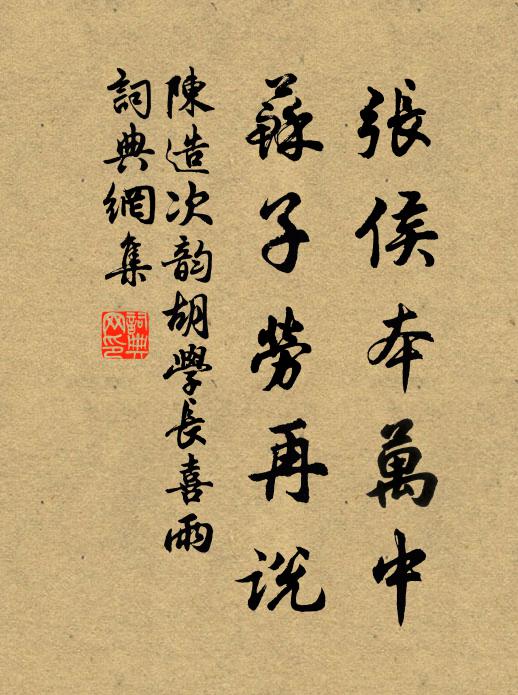 張侯本萬中
蘇子勞再說
陳造次韵胡學長喜雨
詞典網集
詞典
网印